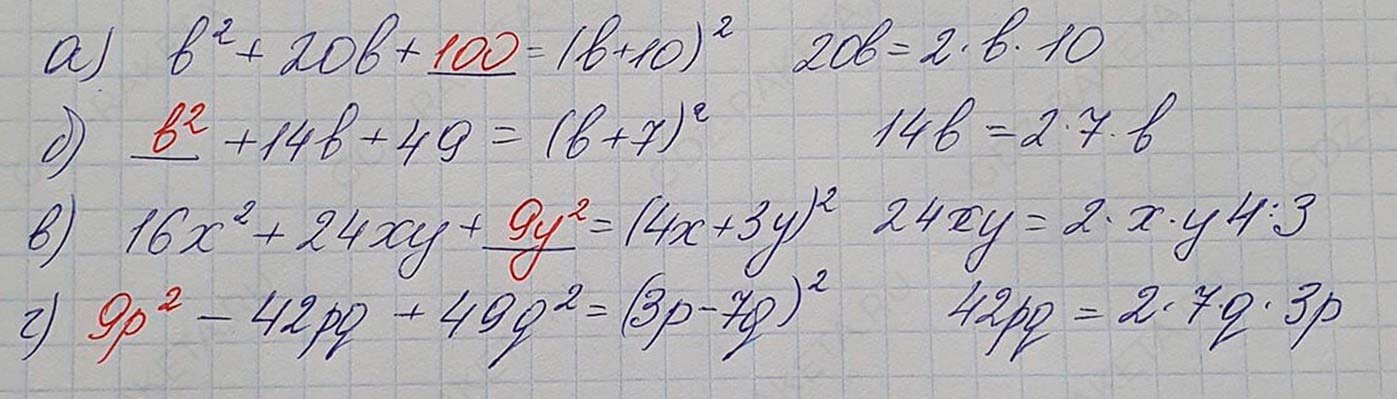 а) b² + 20b + 100 = (b+10)² 20b = 2·b·10
б) b² + 14b + 49 = (b+7)² 14b = 2·7·b
в) 16x² + 24xy + 9y² = (4x+3y)² 24xy = 2·x·y 4·3
г) 9p² - 42pq + 49q² = (3p-7q)² 42pq = 2·7q·3p